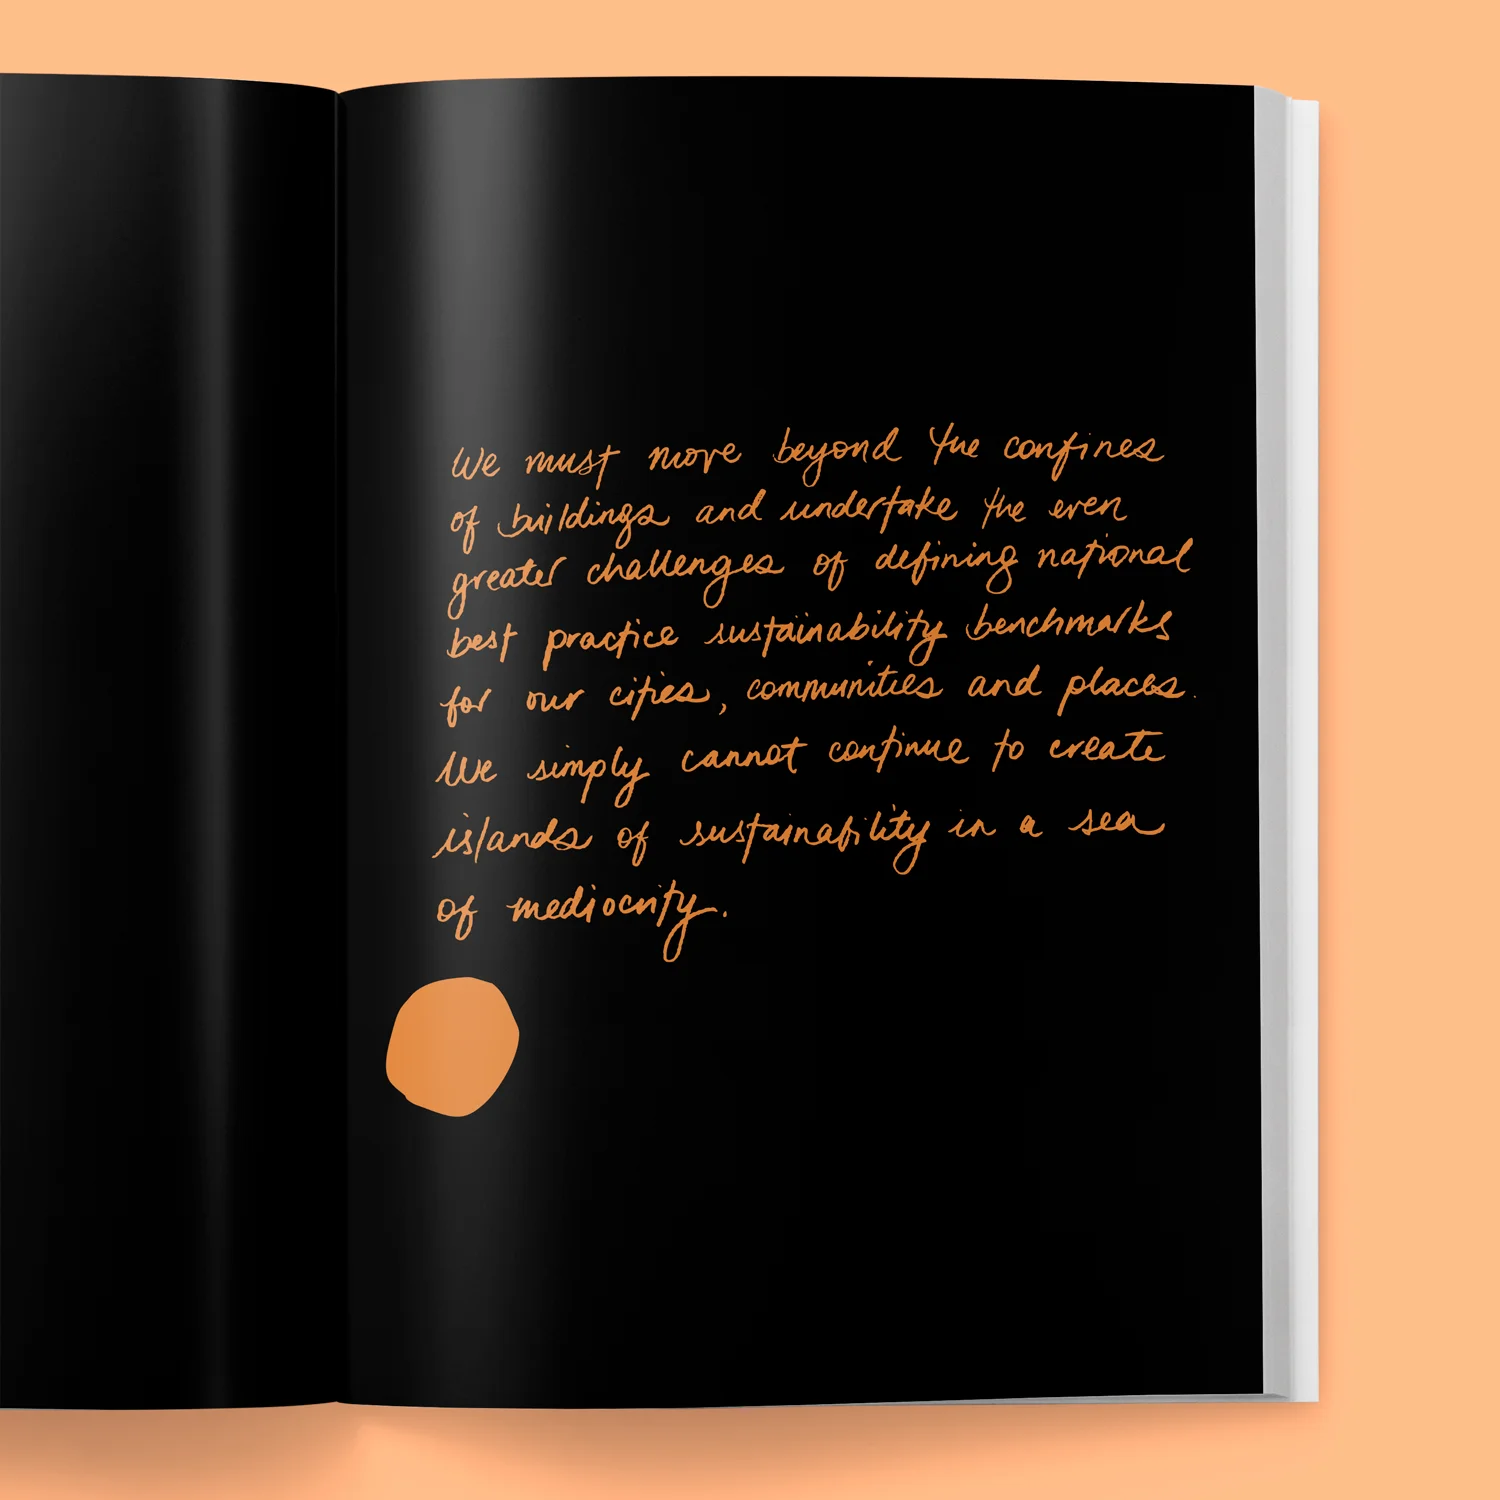 We must move beyond the confines
of buildings and undertake the even
greater challenges of defining national
best practice sustainability benchmarks
for our cities, communities and places.
We simply cannot continue to create
islands of sustainability in a sea
of mediocrity.